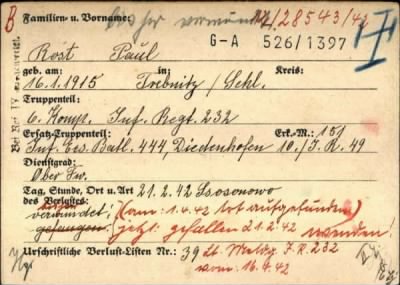 B Familien- u. Vorname: bisher verwundet 12/28543/42
G-A 526/1397
Rost Paul
geb. am: in: Kreis:
16.1.1915 Trebnitz / Schl.
Truppenteil:
6. Komp. Inf. Regt. 232
Ersatz-Truppenteil: Erk.-M.: 151
Inf. Ers. Batl. 444, Diedenhofen 10./J.R. 49
Dienstgrad:
Ober
Tag, Stunde, Ort u. Art 21.2.42
des Verlustes:
verwundet, (am: 1.4.42 tot aufgefunden
gefangen (jetzt: gefallen 21.2.42 werden!
Urschriftliche Verlust-Listen Nr.: 39 lt. Meldg. J.R. 232
vom 16.4.42